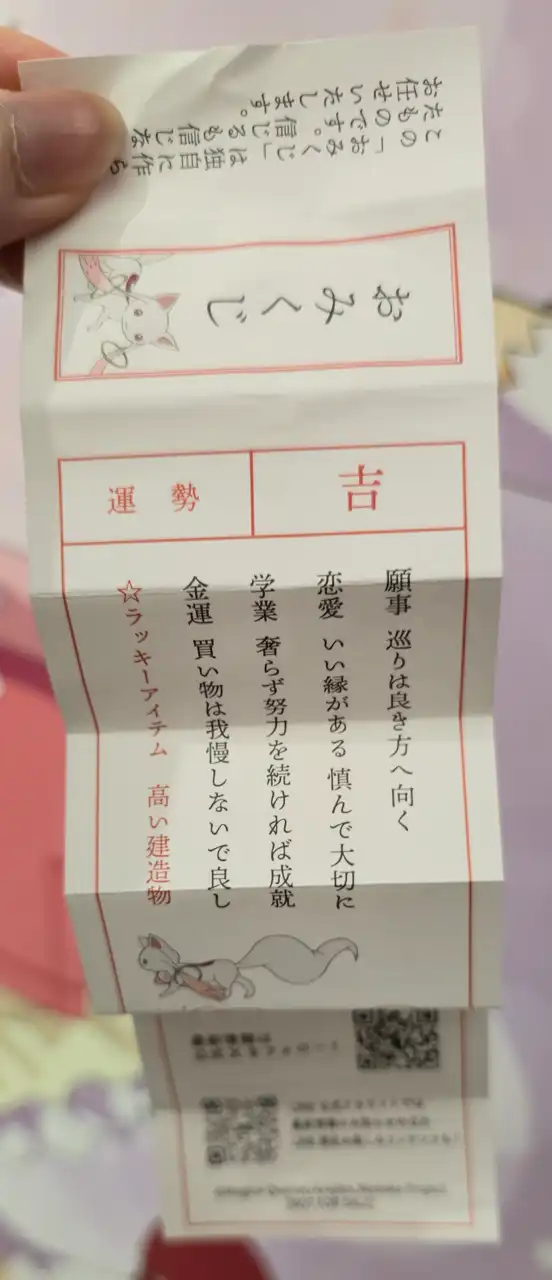 この「おみくじ」は独自に作ら
たものです。信じるも信じな
お任せいたします。
おみくじ
吉
運勢
願事 巡りは良き方へ向く
恋愛 いい縁がある 慎んで大切に
学業 奢らず努力を続ければ成就
金運 買い物は我慢しないで良し
☆ラッキーアイテム 高い建造物